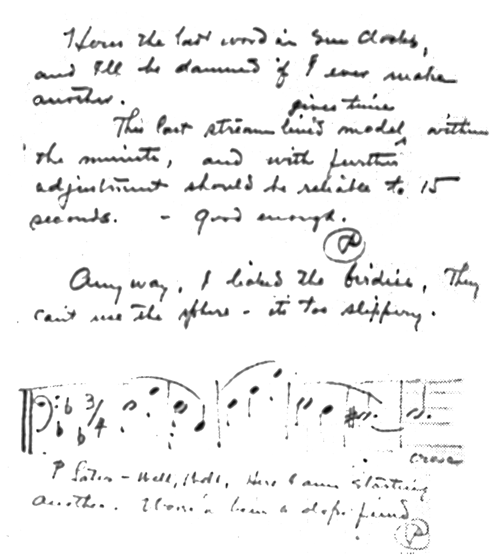 I have the last word in Sun Clocks,
and I'll be damned if I ever make
another.
gives time
This last stream lined model within
the minute, and with further
adjustment should be reliable to 15
seconds. - Good enough.
P
Anyway, I licked the birdies, They
can't use the sphere - its too slippery.
3/4
P Later - Well, Here I am starting
another. like a dope fiend
P